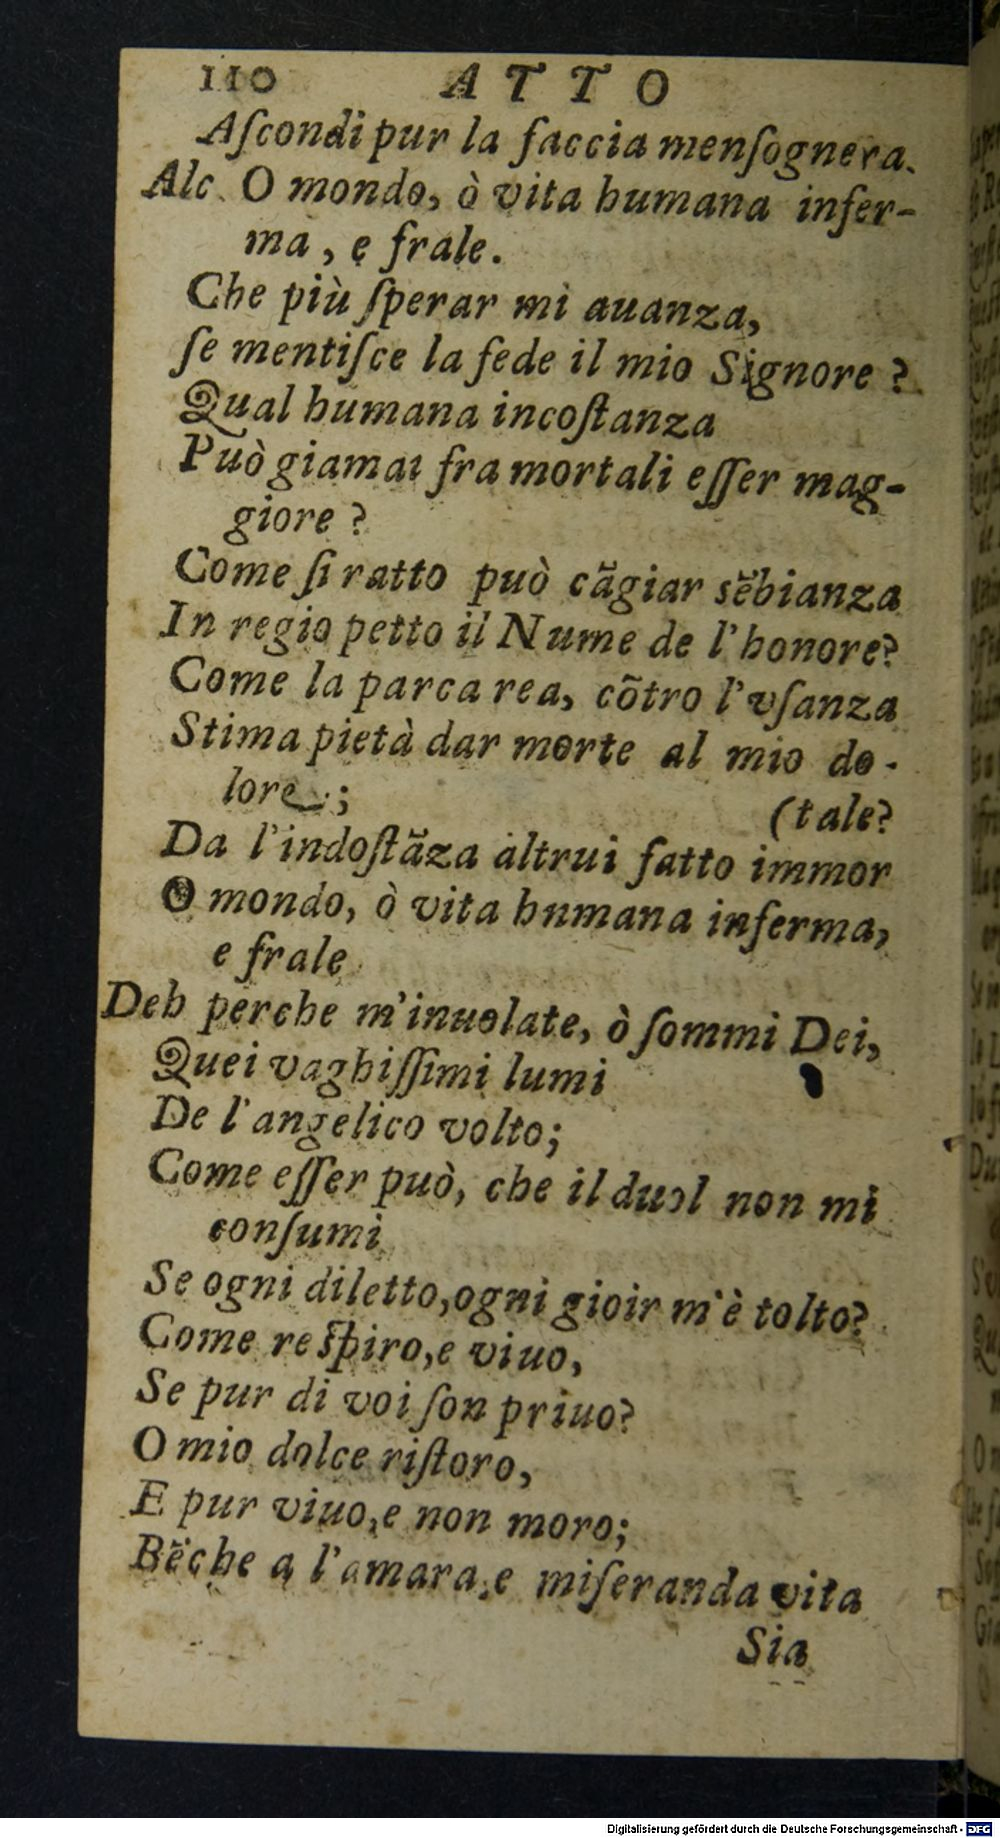 110 ATTO
Aſcondi pur la faccia menſognera.
Alc. O mondo, ò vita humana infer-
ma, e frale.
Che più ſperar mi auanza,
ſe mentiſce la fede il mio Signore?
Qual humana incoſtanza
Può giamai fra mortali eſſer mag-
giore?
Come ſi ratto può cãgiar sẽbianza
In regio petto il Nume de l'honore?
Come la parca rea, cõtro l'vſanza
Stima pietà dar morte al mio do-
lore;
(tale?
Da l'indoſtãza altrui fatto immor
O mondo, ò vita hnmana inferma,
e frale
Deh perche m'inuolate, ò ſommi Dei,
Quei vaghiſſimi lumi
De l'angelico volto;
Come eſſer può, che il duol non mi
conſumi
Se ogni diletto, ogni gioir m'è tolto?
Come reſpiro, e viuo,
Se pur di voi ſon priuo?
O mio dolce riſtoro,
E pur viuo, e non moro;
Bẽche a l'amara, e miſeranda vita
Sia
Digitalisierung gefördert durch die Deutsche Forschungsgemeinschaft - DFG